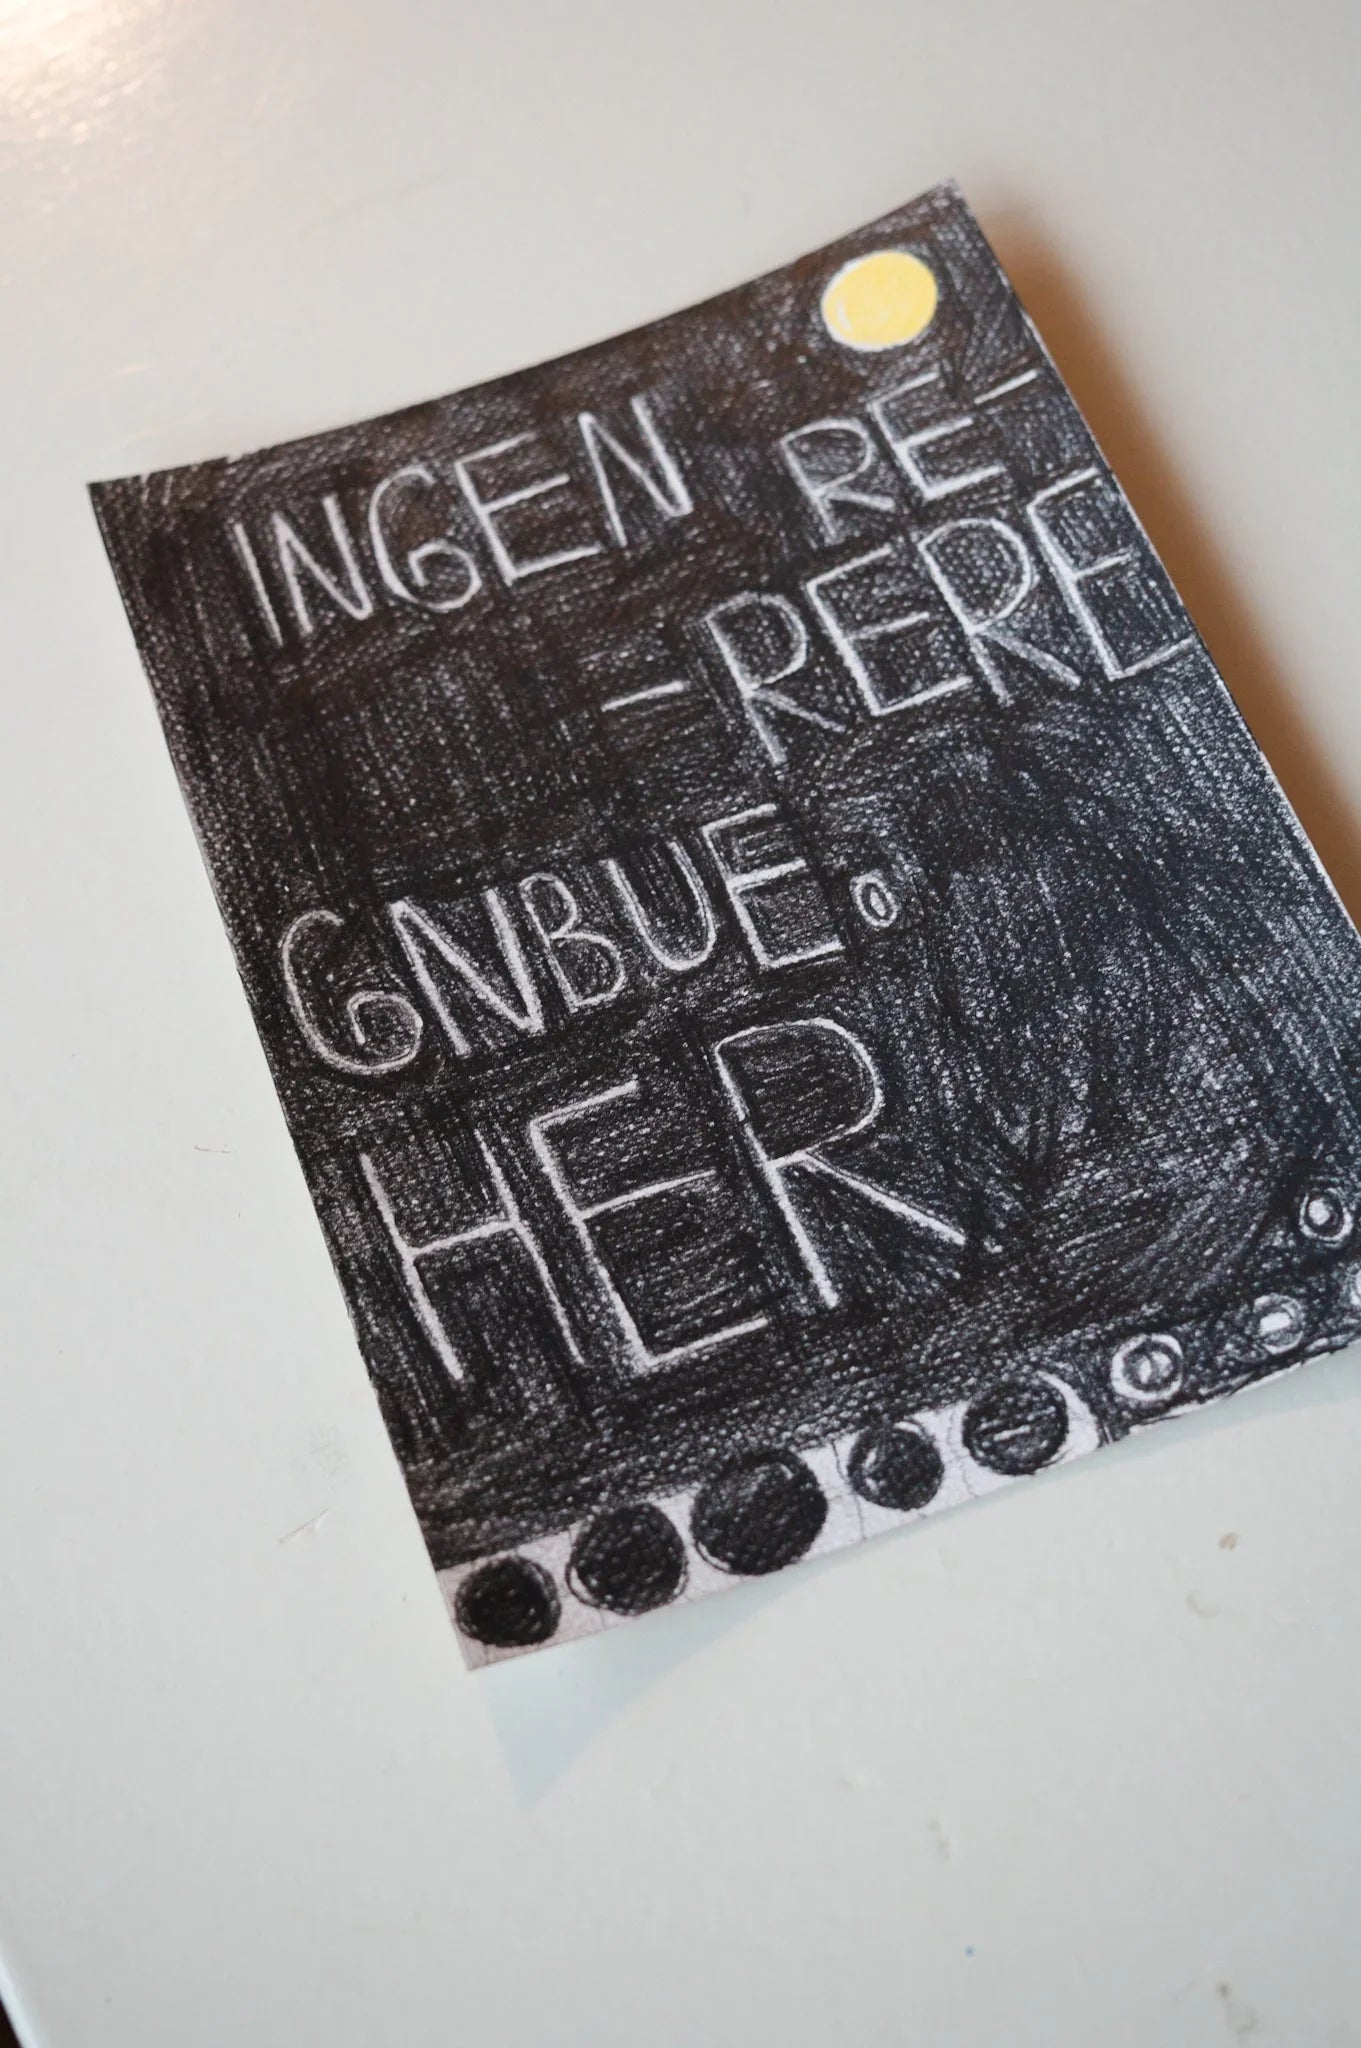 INGEN RE-
-RERE
GNBUE.
HER